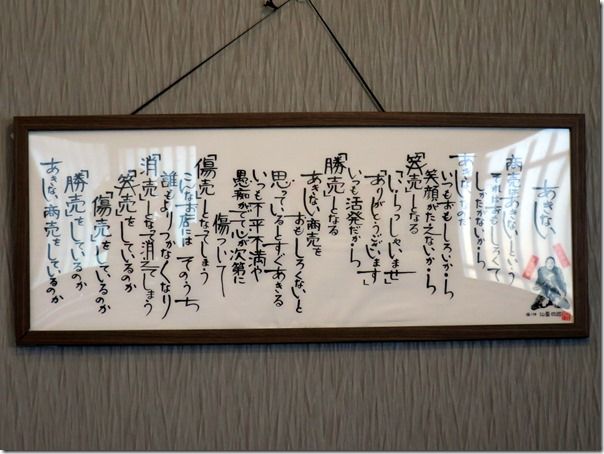 あきない
商売をあきないという
それはおもしろくて
しかたがないから
あきないなのだ
いつもおもしろいから
笑顔がたえないから
「笑売」となる
「いらっしゃいませ」
「ありがとうございます」
いつも活発だから
「勝売」となる
あきない商売を
おもしろくないと
思っているとすぐあきる
いつも不平不満や
愚痴がでて心が次第に
傷ついて
「傷売」となってしまう
こんなお店には そのうち
誰もよりつかなくなり
「消売」となって消えてしまう
「笑売」をしているのか
「傷売」をしているのか
「勝売」をしているのか
あきない商売をしているのか
仙臺四郎